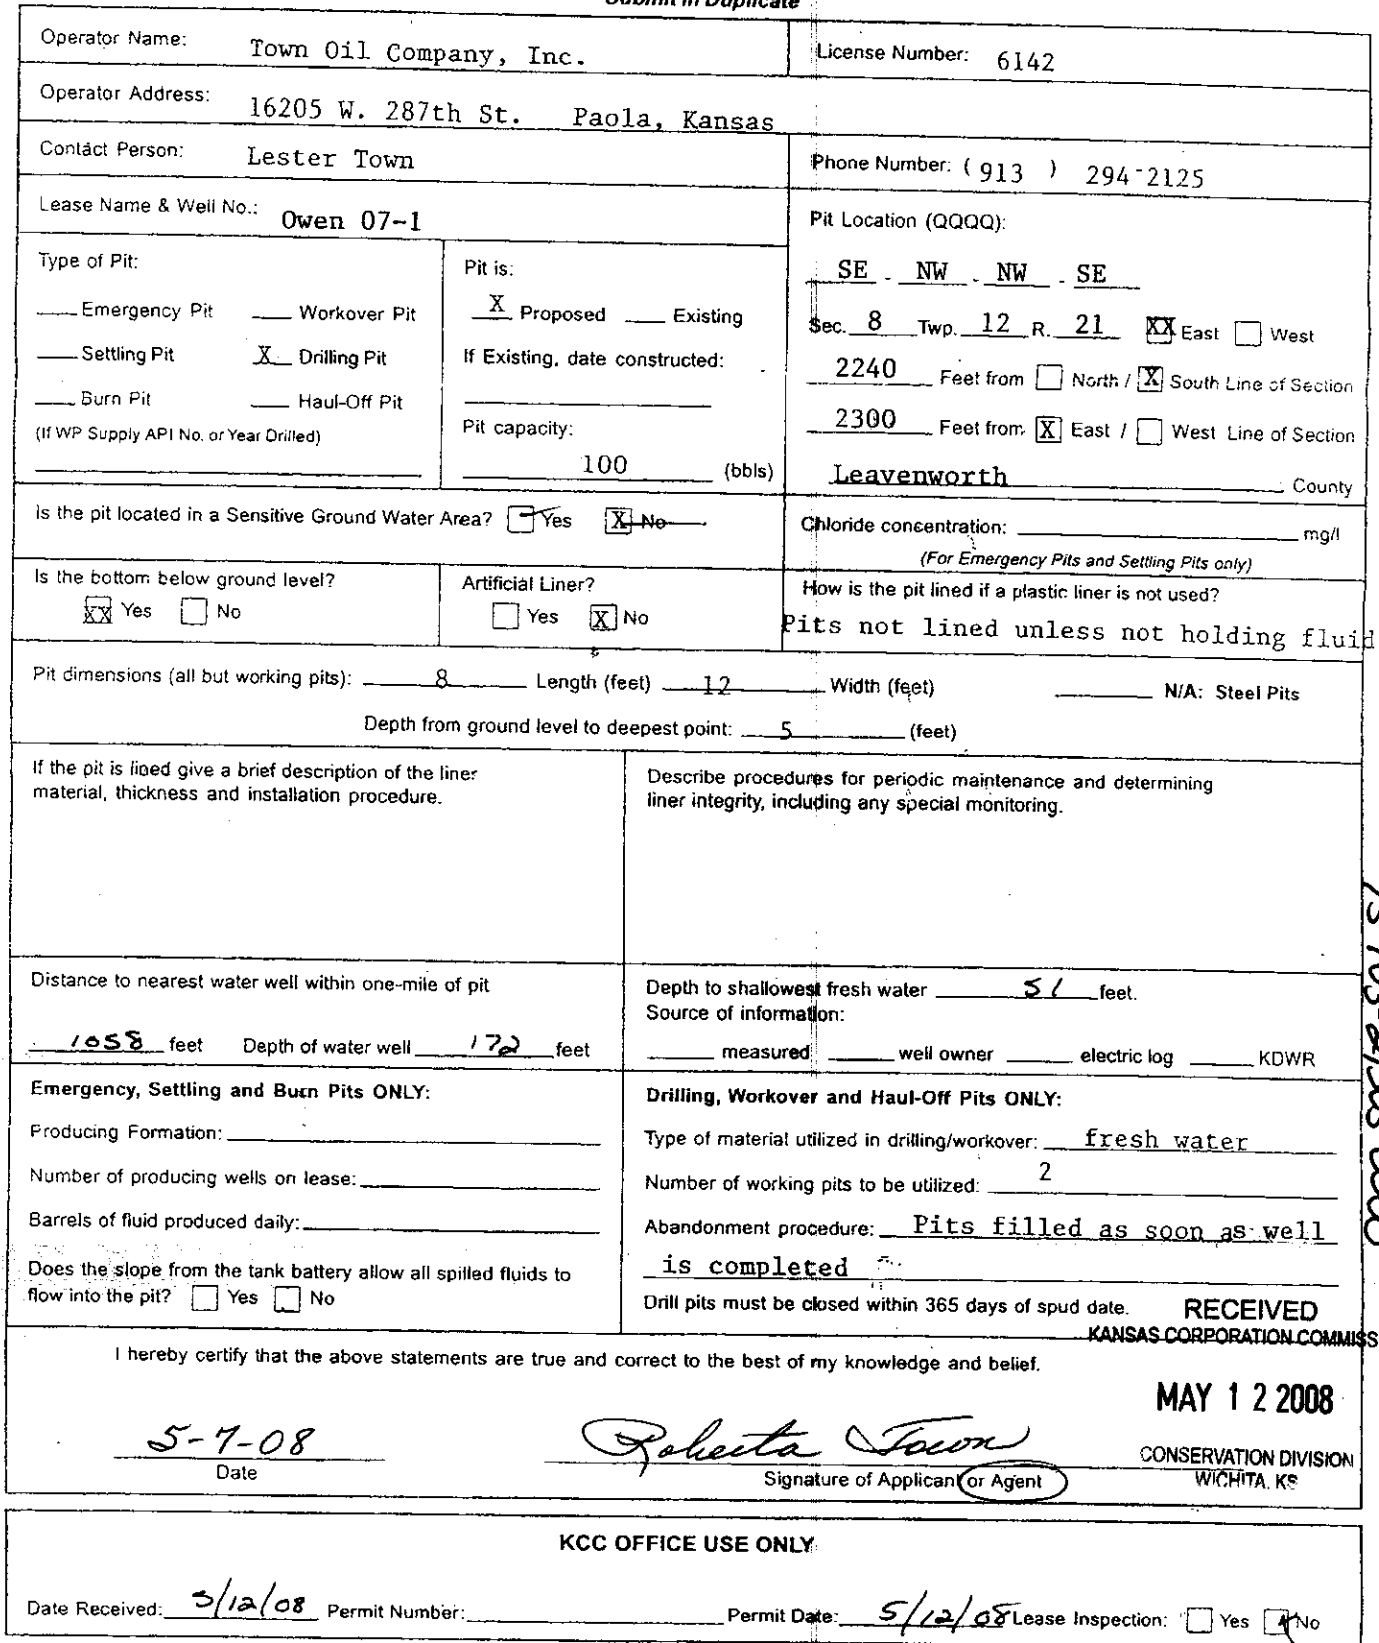 Submit in Duplicate
Operator Name: Town Oil Company, Inc.
License Number: 6142
Operator Address: 16205 W. 287th St. Paola, Kansas
Contact Person: Lester Town
Phone Number: ( 913 ) 294-2125
Lease Name & Well No.: Owen 07-1
Pit Location (QQQQ):
SE - NW - NW - SE
Type of Pit:
Emergency Pit Workover Pit
Settling Pit X Drilling Pit
Burn Pit Haul-Off Pit
(If WP Supply API No. or Year Drilled)
Pit is:
X Proposed Existing
If Existing, date constructed:
Pit capacity:
100 (bbls)
Sec. 8 Twp. 12 R. 21 XX East West
2240 Feet from North / X South Line of Section
2300 Feet from X East / West Line of Section
Leavenworth County
Is the pit located in a Sensitive Ground Water Area? Yes X No
Chloride concentration: mg/l
(For Emergency Pits and Settling Pits only)
Is the bottom below ground level?
XX Yes No
Artificial Liner?
Yes X No
How is the pit lined if a plastic liner is not used?
Pits not lined unless not holding fluid
Pit dimensions (all but working pits): 8 Length (feet) 12 Width (feet) N/A: Steel Pits
Depth from ground level to deepest point: 5 (feet)
If the pit is lined give a brief description of the liner
material, thickness and installation procedure.
Describe procedures for periodic maintenance and determining
liner integrity, including any special monitoring.
Distance to nearest water well within one-mile of pit
1058 feet Depth of water well 172 feet
Depth to shallowest fresh water 51 feet.
Source of information:
measured well owner electric log KDWR
Emergency, Settling and Burn Pits ONLY:
Producing Formation:
Number of producing wells on lease:
Barrels of fluid produced daily:
Does the slope from the tank battery allow all spilled fluids to
flow into the pit? Yes No
Drilling, Workover and Haul-Off Pits ONLY:
Type of material utilized in drilling/workover: fresh water
Number of working pits to be utilized: 2
Abandonment procedure: Pits filled as soon as well
is completed
Drill pits must be closed within 365 days of spud date.
RECEIVED
KANSAS CORPORATION COMMISS
I hereby certify that the above statements are true and correct to the best of my knowledge and belief.
MAY 12 2008
5-7-08
Date
Roberta Town
Signature of Applicant or Agent
CONSERVATION DIVISION
WICHITA, KS
KCC OFFICE USE ONLY
Date Received: 5/12/08 Permit Number: Permit Date: 5/12/08 Lease Inspection: Yes No